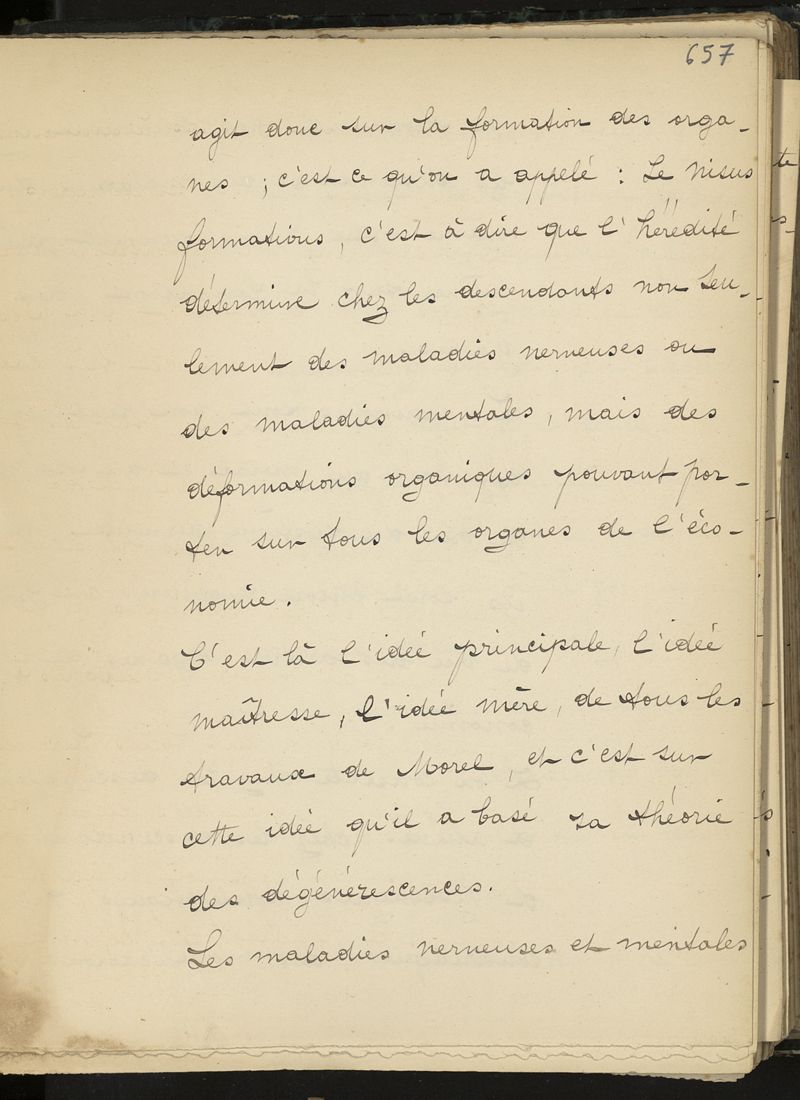 657
agit donc sur la formation des orga-
nes ; c'est ce qu'on a appelé : Le nisus
formatious, c'est à dire que l'hérédité
détermine chez les descendants non seu-
lement des maladies nerveuses ou
des maladies mentales, mais des
déformations organiques pouvant por-
ter sur tous les organes de l'éco-
nomie.
C'est là l'idée principale, l'idée
maîtresse, l'idée mère, de tous les
travaux de Morel, et c'est sur
cette idée qu'il a basé sa théorie
des dégénérescences.
Les maladies nerveuses et mentales